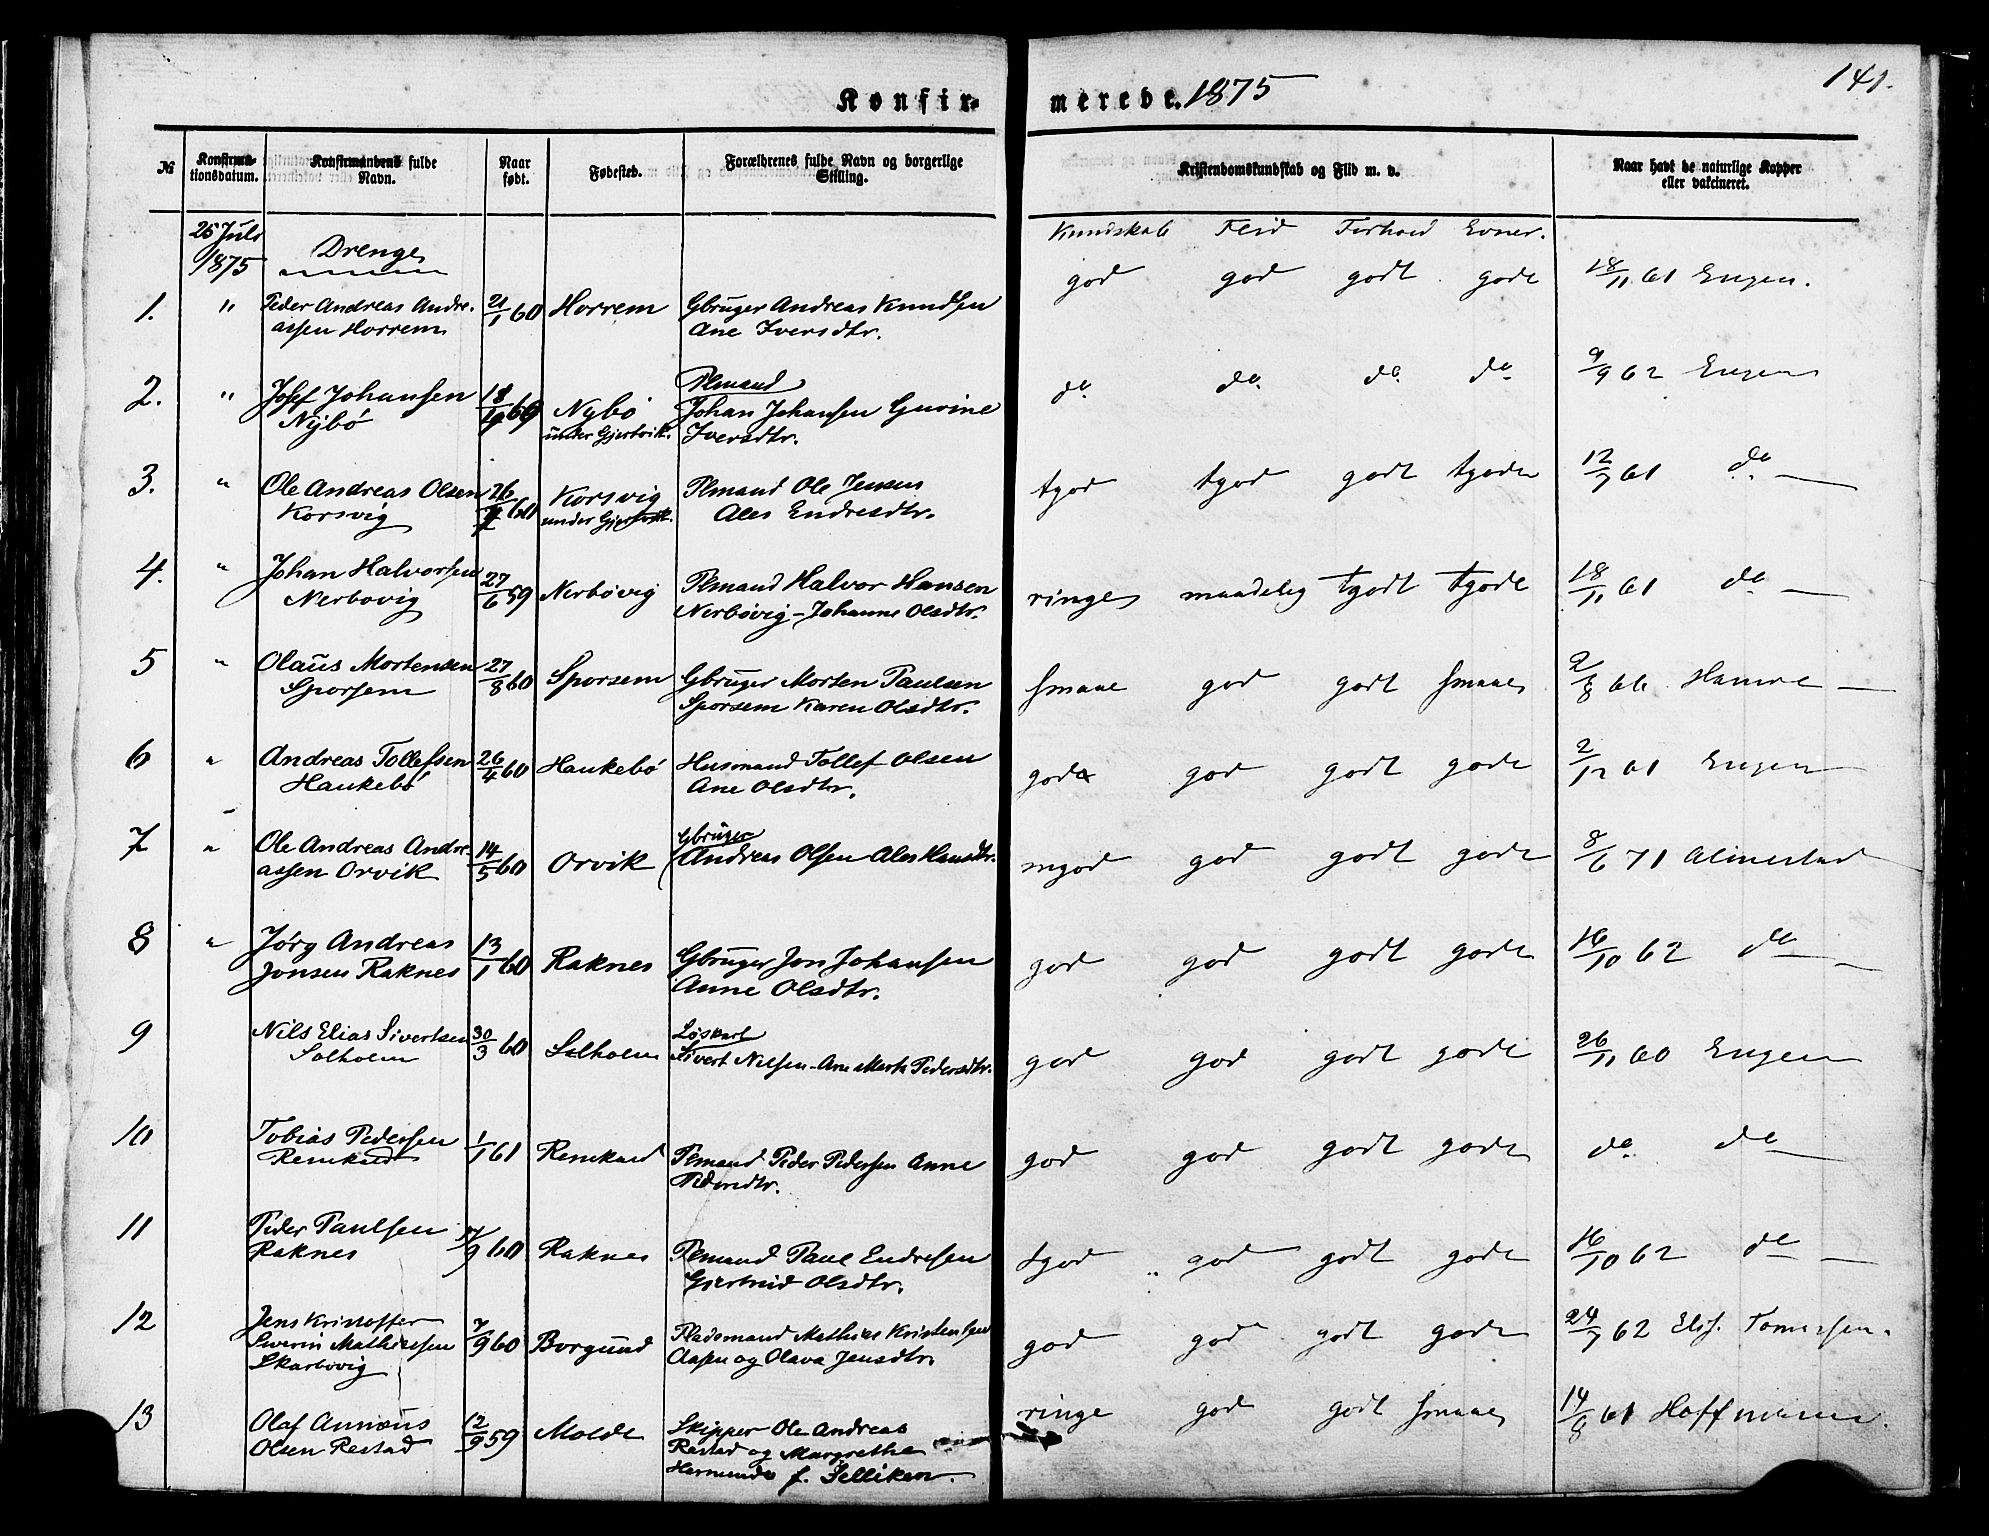 Konfirmerede. 1875
141.
№ Konfirmationsdatum. Konfirmandens fulde Navn. Naar født. Fødested. Forældrenes fulde Navn og borgerlige Stilling. Kristendomskundskab og Flid m. v. Naar havt de naturlige Kopper eller vakcineret.
25 Juli 1875 Drenge Kundskab Flid Forhold Evner.
1. " Peder Andreas Andreassen Horrem 21/1 60 Horrem Gbruger Andreas Knudsen Ane Iversdtr. god god godt gode 18/11 61 Engen.
2. " Josef Johansen Nybö 18/10 60 Nybö under Gjerdvik. Plmand Johan Johansen Gurine Iversdtr. do. do. do. do 9/9 62 Engen
3. " Ole Andreas Olsen Korsvig 26/7 60 Korsvig under Gjerdvik. Plmand Ole Jensen Ales Endresdtr. tgod tgod godt tgode 12/7 61 do —
4. " Johan Halvorsen Nerbovig 27/6 59 Nerbövig Plmand Halvor Hansen Nerbövig - Johanne Olsdtr. ringe maadelig tgodt tgode 18/11 61 do —
5 " Olaus Mortensen Sporsem 27/8 60 Sporsem Gbruger Morten Paulsen Sporsem Karen Olsdtr. smaae god godt smaae 2/8 66 —
6 " Andreas Tollefsen Haukebö 26/4 60 Haukebö Husmand Tollef Olsen Ane Olsdtr. god god godt gode 2/12 61 Engen
7 " Ole Andreas Andreassen Orvik 14/5 60 Orvik Gbruger Andreas Olsen Ales Hansdtr. mgod god godt gode 8/6 71 Alnestad
8 " Jörg Andreas Jonsen Raknes 13/1 60 Raknes Gbruger Jon Johansen Anne Olsdtr. god god godt gode 16/10 62 do —
9 Nils Elias Sivertsen Solholm 30/3 60 Solholm Löskarl Sivert Nilsen - Ane Marta Pedersdtr. god god godt gode 26/11 60 Engen
10 Tobias Pedersen Remkned 1/1 61 Remkned Plmand Peder Pedersen Anne Pedersdtr. god god godt gode do. do
11 Peder Paulsen Raknes /9 60 Raknes Plmand Paul Endresen Gjertrud Olsdtr. tgod god godt gode 16/10 62 do —
12 Jens Kristoffer Severin Mathiesen Skarbovig 7/9 60 Borgund Pladsmand Mathias Kristensen Aasen og Olava Jensdtr. god god godt gode 24/7 62 Elis. Tomassen.
13 Olaf Annæus Olsen Restad 12/9 59 Molde Skipper Ole Andreas Restad og Margrethe f. Selliken. ringe god godt smaae 14/8 61 Hoffmann.